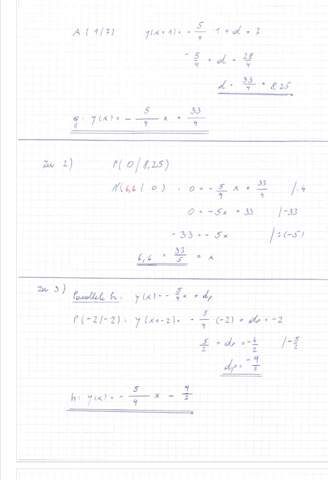 A(1/7) y(x=1) = -5/4 · 1 + d = 7
-5/4 + d = 28/4
d = 33/4 = 8,25
g: y(x) = -5/4 x + 33/4
Zu 2) P(0/8,25)
N(6,6/0) 0 = -5/4 x + 33/4 /·4
0 = -5x + 33 /-33
-33 = -5x /:(-5)
6,6 = 33/5 = x
Zu 3) Parallele h: y(x) = -5/4 x + dp
P(-2/-2): y(x=-2) = -5/4 · (-2) + dp = -2
5/2 + dp = -4/2 /-5/2
dp = -9/2
h: y(x) = -5/4 x - 9/2